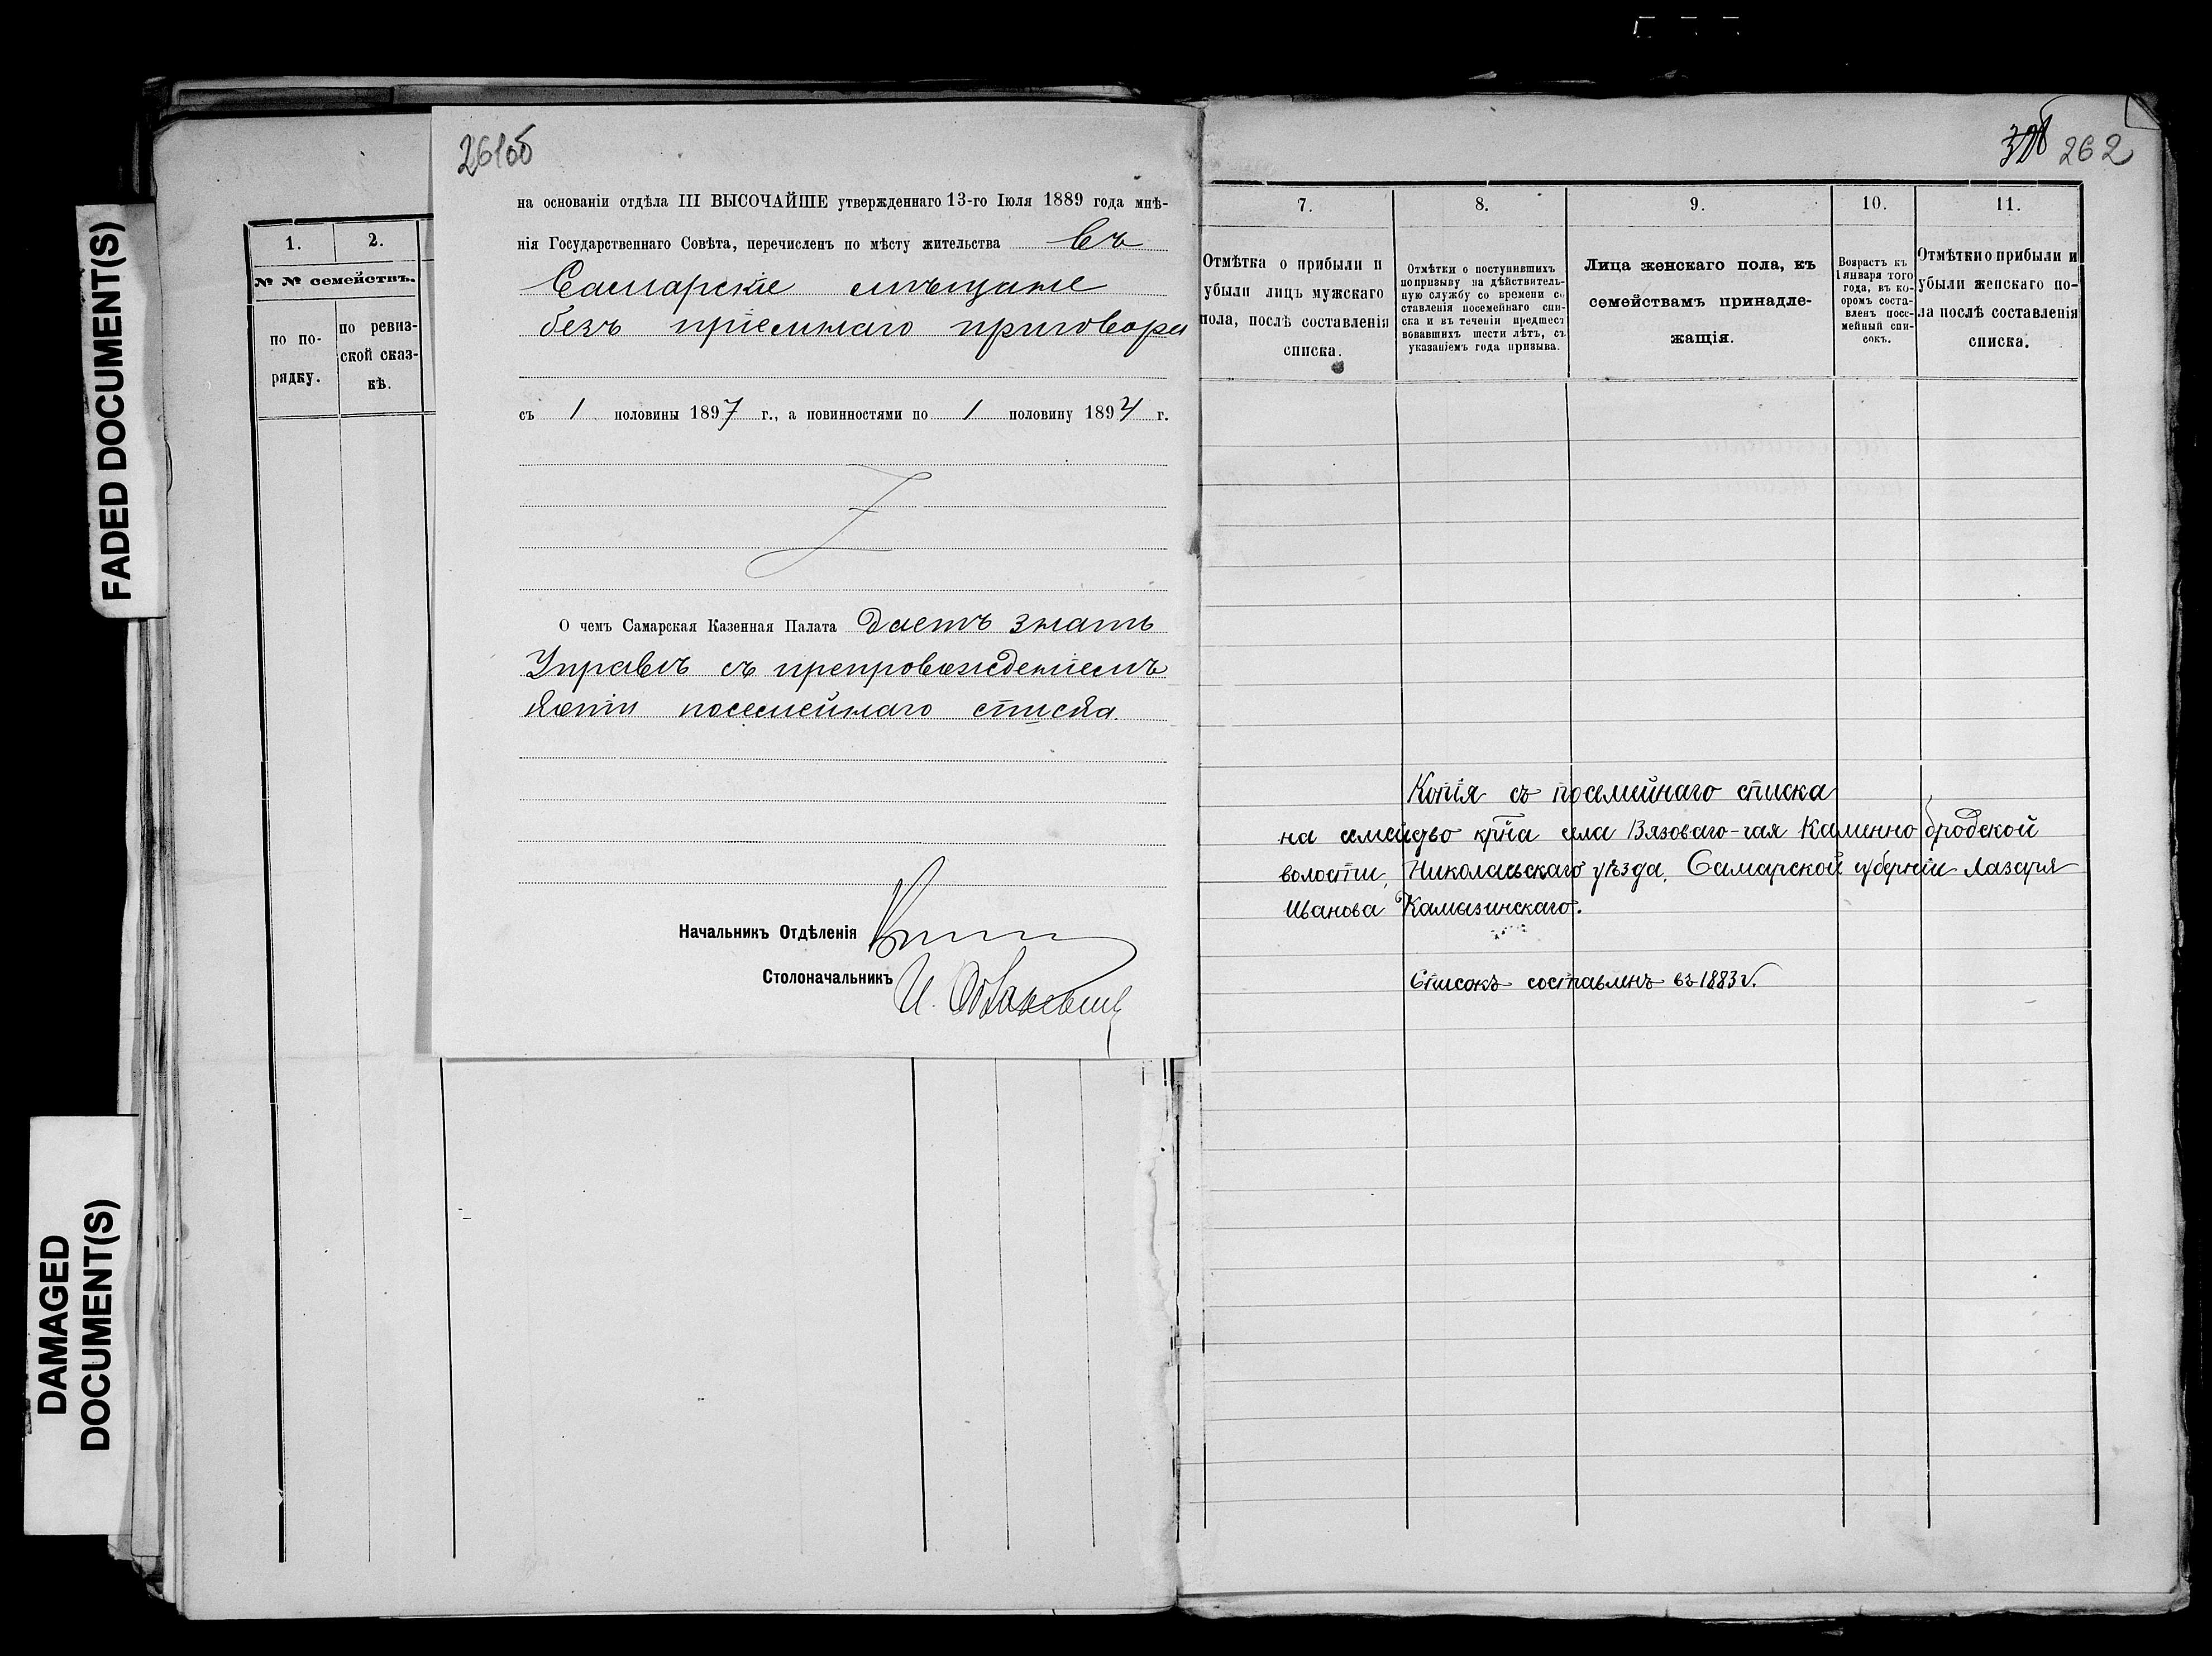 FADED DOCUMENT(S)
DAMAGED
DOCUMENT(S)
1.
2.
№ № семействъ.
по по-
рядку.
по ревиз-
ской сказ-
кѣ.
261об
на основаніи отдѣла III ВЫСОЧАЙШЕ утвержденнаго 13-го Іюля 1889 года мнѣ-
нія Государственнаго Совѣта, перечисленъ по мѣсту жительства въ
Самарскіе мѣщане
безъ пріемнаго приговора
съ 1 половины 1897 г., а повинностями по 1 половину 189 г.
О чемъ Самарская Казенная Палата даетъ знать
Управѣ съ препровожденіемъ
копіи посемейнаго списка.
Начальникъ Отдѣленія
Столоначальникъ И.
262
7.
8.
9.
10.
11.
Отмѣтка о прибыли и
убыли лицъ мужскаго
пола, послѣ составленія
списка.
Отмѣтки о поступившихъ
по призыву на дѣйствитель-
ную службу со времени со
ставленія посемейнаго спи-
ска и въ теченіи предшест
вовавшихъ шести лѣтъ, съ
указаніемъ года призыва.
Лица женскаго пола, къ
семействамъ принадле-
жащія.
Возрастъ къ
1 января того
года, въ ко-
оромъ соста-
вленъ посе-
мейный спи-
сокъ.
Отмѣтки о прибыли и
убыли женскаго по-
ла послѣ составленія
списка.
Копія съ посемейнаго списка
на семейство крна села Вязоваго-гая Каменно бродской
волости, Николаевскаго уѣзда, Самарской губерніи Лазаря
Иванова Камызинскаго.
Списокъ составленъ въ 1883 г.